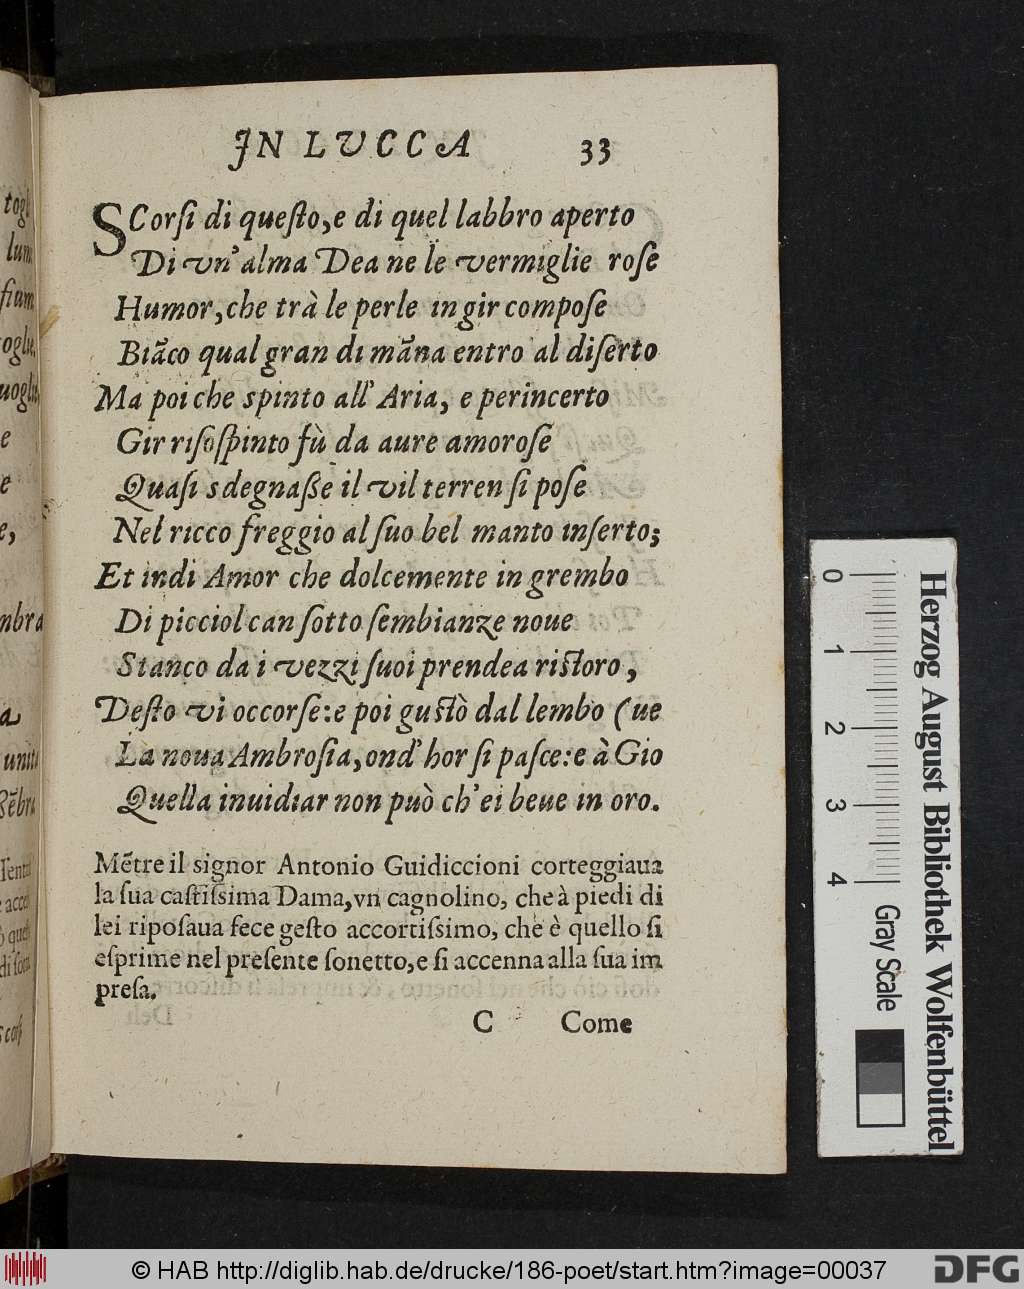 IN LVCCA 33
SCorſi di queſto, e di quel labbro aperto
Di vn' alma Dea ne le vermiglie roſe
Humor, che trà le perle in gir compoſe
Biāco qual gran di māna entro al diſerto
Ma poi che spinto all' Aria, e perincerto
Gir riſoſpinto fù da aure amoroſe
Quaſi sdegnaße il vil terren ſi poſe
Nel ricco freggio al ſuo bel manto inſerto;
Et indi Amor che dolcemente in grembo
Di picciol can ſotto ſembianze noue
Stanco da i vezzi ſuoi prendea riſtoro,
Deſto vi occorſe: e poi guſtò dal lembo (ue
La noua Ambroſia, ond' hor ſi paſce: e à Gio
Quella inuidiar non può ch' ei beue in oro.
Mētre il signor Antonio Guidiccioni corteggiaua
la ſua caſtiſsima Dama, vn cagnolino, che à piedi di
lei ripoſaua fece geſto accortiſsimo, che è quello ſi
eſprime nel preſente ſonetto, e ſi accenna alla ſua im
preſa.
C Come
togl
lum
fium
oglie,
uoglie
e
e
e,
mbra
a
unita
Herzog August Bibliothek Wolfenbüttel
0 1 2 3 4
Gray Scale
© HAB http://diglib.hab.de/drucke/186-poet/start.htm?image=00037
DFG